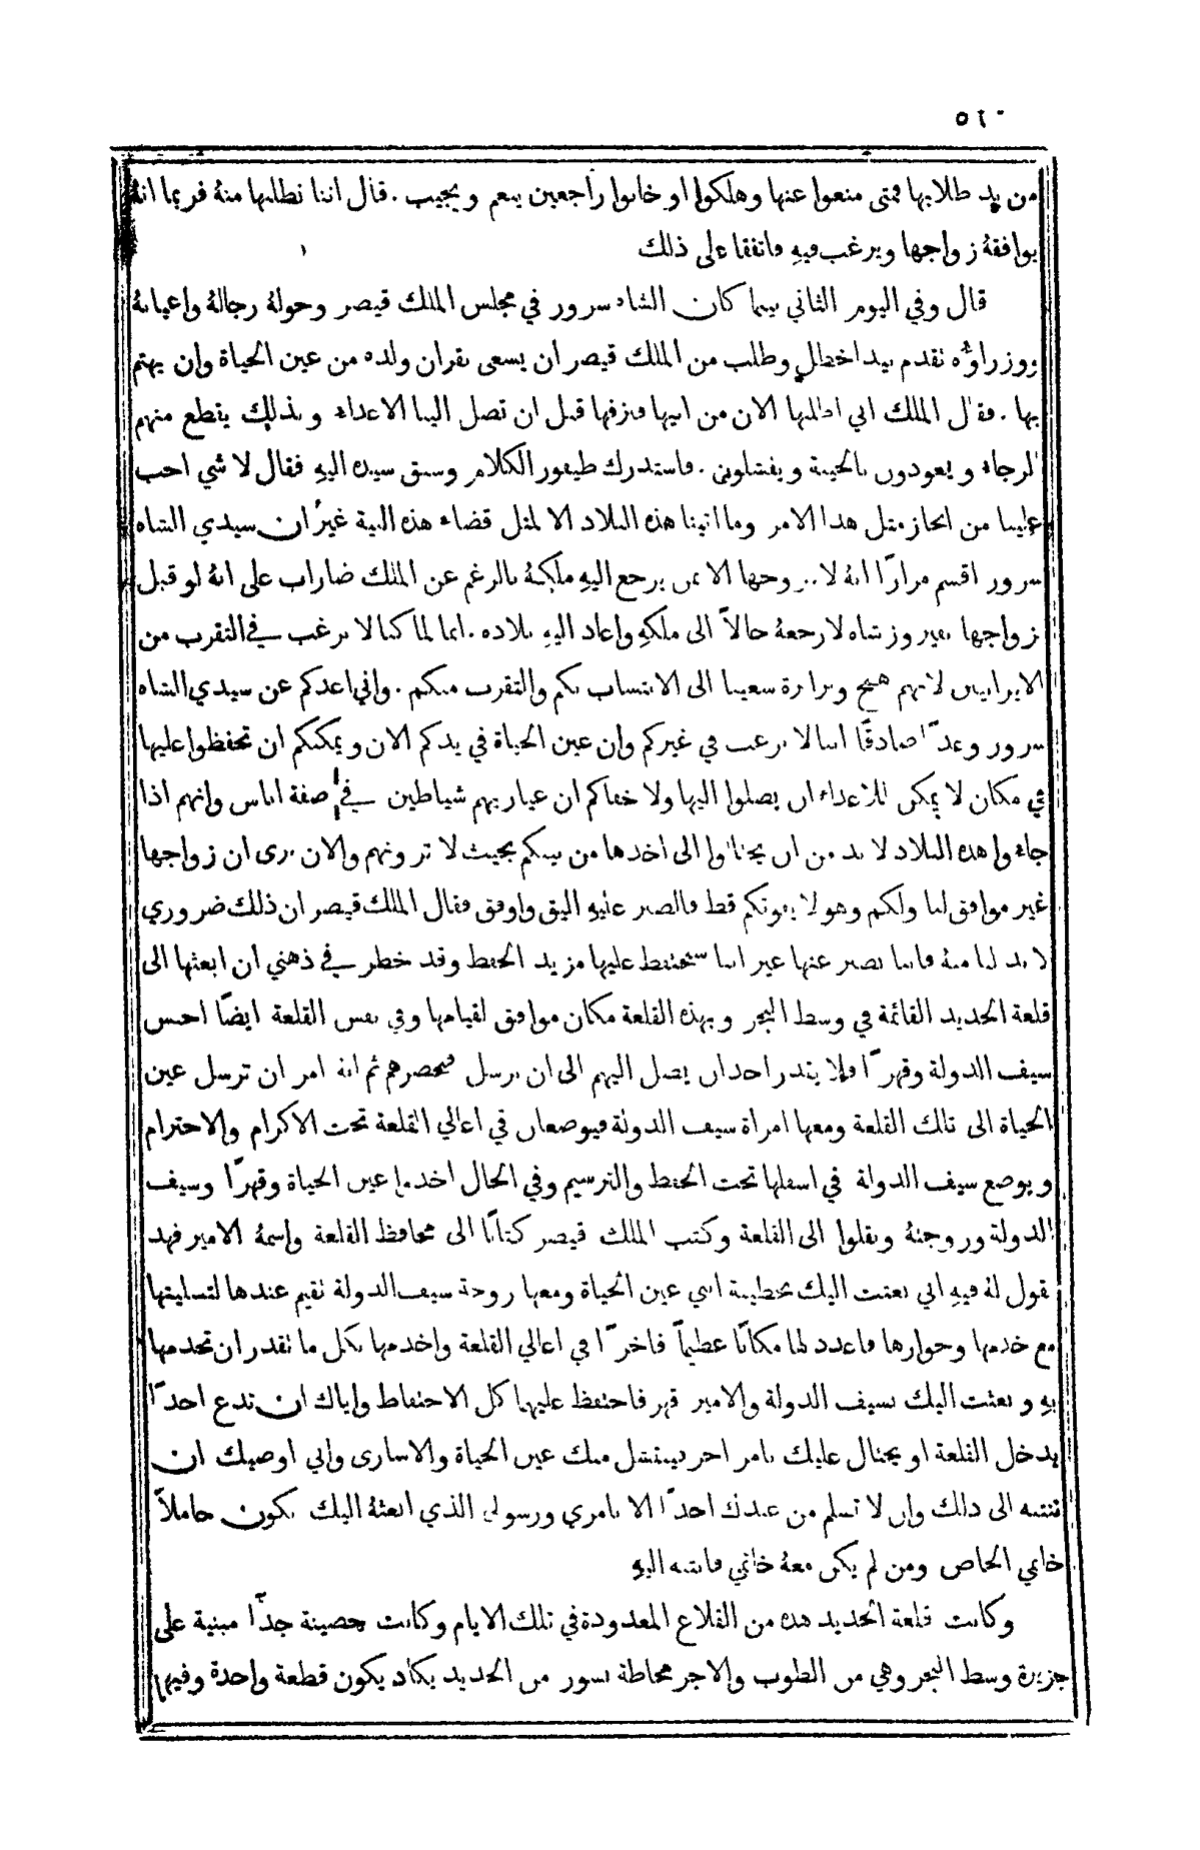 ٥٦٠
من يد طلابها فمتى منعوا عنها وهلكوا او خابوا راجعين ينعم ويجيب . قال اننا نطلبها منهُ فربما انهُ
يوافقهُ زواجها ويرغب فيهِ فاتفقا على ذلك
قال وفي اليوم الثاني بينما كان الشاه سرور في مجلس الملك قيصر وحولهُ رجالهُ واعيانهُ
ووزراؤُه تقدم بيد اخطل وطلب من الملك قيصر ان يسعى بقران ولده من عين الحياة وان يهتم
بها . فقال الملك اني اطلبها الان من ابيها فنزفها قبل ان تصل الينا الاعداء وبذلك يقطع منهم
الرجاء ويعودون بالخيبة ويفشلون . فاستدرك طيفور الكلام وسبق سيده اليهِ فقال لا شي احب
علينا من انجاز مثل هذا الامر وما اتينا هذه البلاد الا لمثل قضاء هذه النية غيرُ ان سيدي الشاه
سرور اقسم مرارًا انهُ لا يزوجها الا بمن يرجع اليهِ ملكهُ بالرغم عن الملك ضاراب على انهُ لو قبل
زواجها بفيروز شاه لارجعهُ حالاً الى ملكهِ واعاد اليهِ بلاده . انما لما كنا لا نرغب في التقرب من
الايرانيين لانهم همج وبرابرة سعينا الى الانتساب بكم والتقرب منكم . واني اعدكم عن سيدي الشاه
سرور وعدًا صادقًا اننا لا نرغب في غيركم وان عين الحياة في يدكم الان ويمكنكم ان تحفظوا عليها
في مكان لا يمكن للاعداء ان يصلوا اليها ولا خفاكم ان عياريهم شياطين في صفة اناس وانهم اذا
جاءوا هذه البلاد لا بد من ان يحتالوا الى اخذها من بينكم بحيث لا ترونهم والان نرى ان زواجها
غير موافق لنا ولكم وهو لا يفوتكم قط فالصبر عليهِ اليق واوفق فقال الملك قيصر ان ذلك ضروري
لا بد لنا منهُ فاننا نصبر عنها غير اننا سنحتفظ عليها مزيد الحفظ وقد خطر في ذهني ان ابعثها الى
قلعة الحديد القائمة في وسط البحر وبهذه القلعة مكان موافق لقيامها وفي نفس القلعة ايضًا احبس
سيف الدولة وقهرًا فلا يقدر احد ان يصل اليهم الى ان نرسل فنحضرهم ثم انه امر ان ترسل عين
الحياة الى تلك القلعة ومعها امراة سيف الدولة فيوضعان في اعالي القلعة تحت الاكرام والاحترام
ويوضع سيف الدولة في اسفلها تحت الحفظ والترسيم وفي الحال اخذوا عين الحياة وقهرًا وسيف
الدولة وزوجتهُ ونقلوا الى القلعة وكتب الملك قيصر كتابًا الى محافظ القلعة واسمهُ الامير فهد
يقول لهُ فيهِ اني بعثت اليك بخطيبة ابني عين الحياة ومعها زوجة سيف الدولة تقيم عندها لتسليتها
مع خدمها وجوارها فاعدد لها مكانًا عظيماً فاخرًا في اعالي القلعة واخدمها بكل ما تقدر ان تخدمها
بهِ وبعثت اليك بسيف الدولة والامير قهر فاحتفظ عليهما كل الاحتفاظ واياك ان تدع احدًا
يدخل القلعة او يحتال عليك بامر اخر فينتشل منك عين الحياة والاسارى واني اوصيك ان
تنتبه الى ذلك وان لا تسلم من عندك احدًا الا بامري ورسولي الذي ابعثهُ اليك يكون حاملاً
خاتمي الخاص ومن لم يكن معهُ خاتمي فانتبه اليهِ
وكانت قلعة الحديد هذه من القلاع المعدودة في تلك الايام وكانت حصينة جدًّا مبنية على
جزيرة وسط البحر وهي من الطوب والاجر محاطة بسور من الحديد يكاد يكون قطعة واحدة وفيها